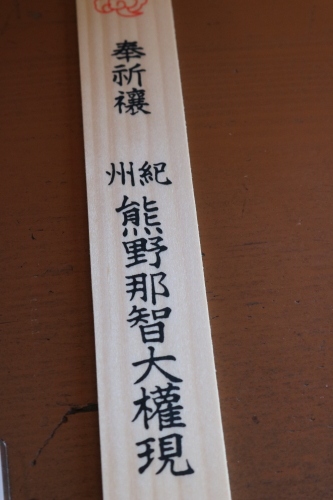 奉祈禳
紀州
熊野那智大權現